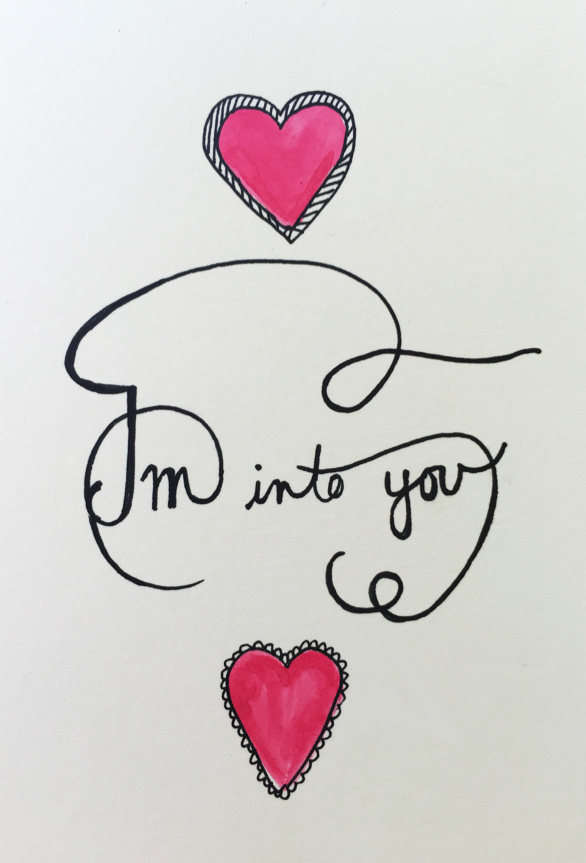 I'm into you